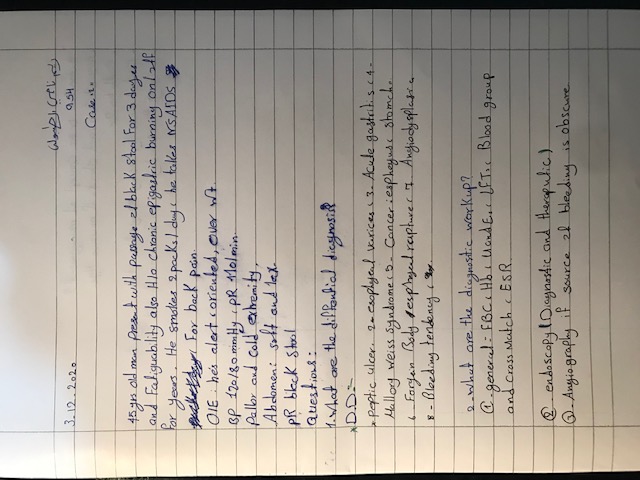 3.12.2020
Case
45 yr old man present with passage of black stool for 3 dayes
and Fatiguability also H/o chronic epigastric burning on/off
for years. He smokes 2 packs/day, he takes NSAIDS
For back pain.
O/E he's alert, oriented, over wt.
BP 120/80 mmHg, PR 110/min
Pallor and cold extremity,
Abdomen: soft and lax
PR black stool
Questions:
1. What are the diffrential diagnosis?
D.D:-
Peptic ulcer. 2- esophyal varices, 3- Acute gastritis, 4-
Mallory weiss syndrome, 5- Cancer: esphegus, stomch.
6- Foreign Body, esophyal repture, 7- Angiodysplasia
8- Bleeding tendency
2- What are the diagnostic workup?
① general:- FBC, Hb, U and E, LFT, Blood group
and cross Match, ESR
② endoscopy (Diagnostic and theraputic)
③ Angiography if source of bleeding is obscure